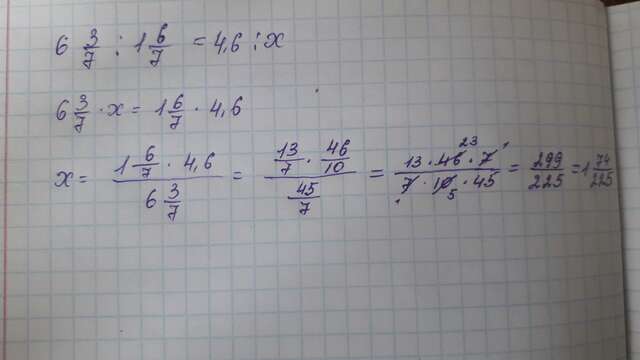 6 3/7 : 1 6/7 = 4,6 : x
6 3/7 · x = 1 6/7 · 4,6
x = (1 6/7 · 4,6)/(6 3/7) = (13/7 · 46/10)/(45/7) = (13 · 46 23 · 7 1)/(7 1 · 10 5 · 45) = 299/225 = 1 74/225